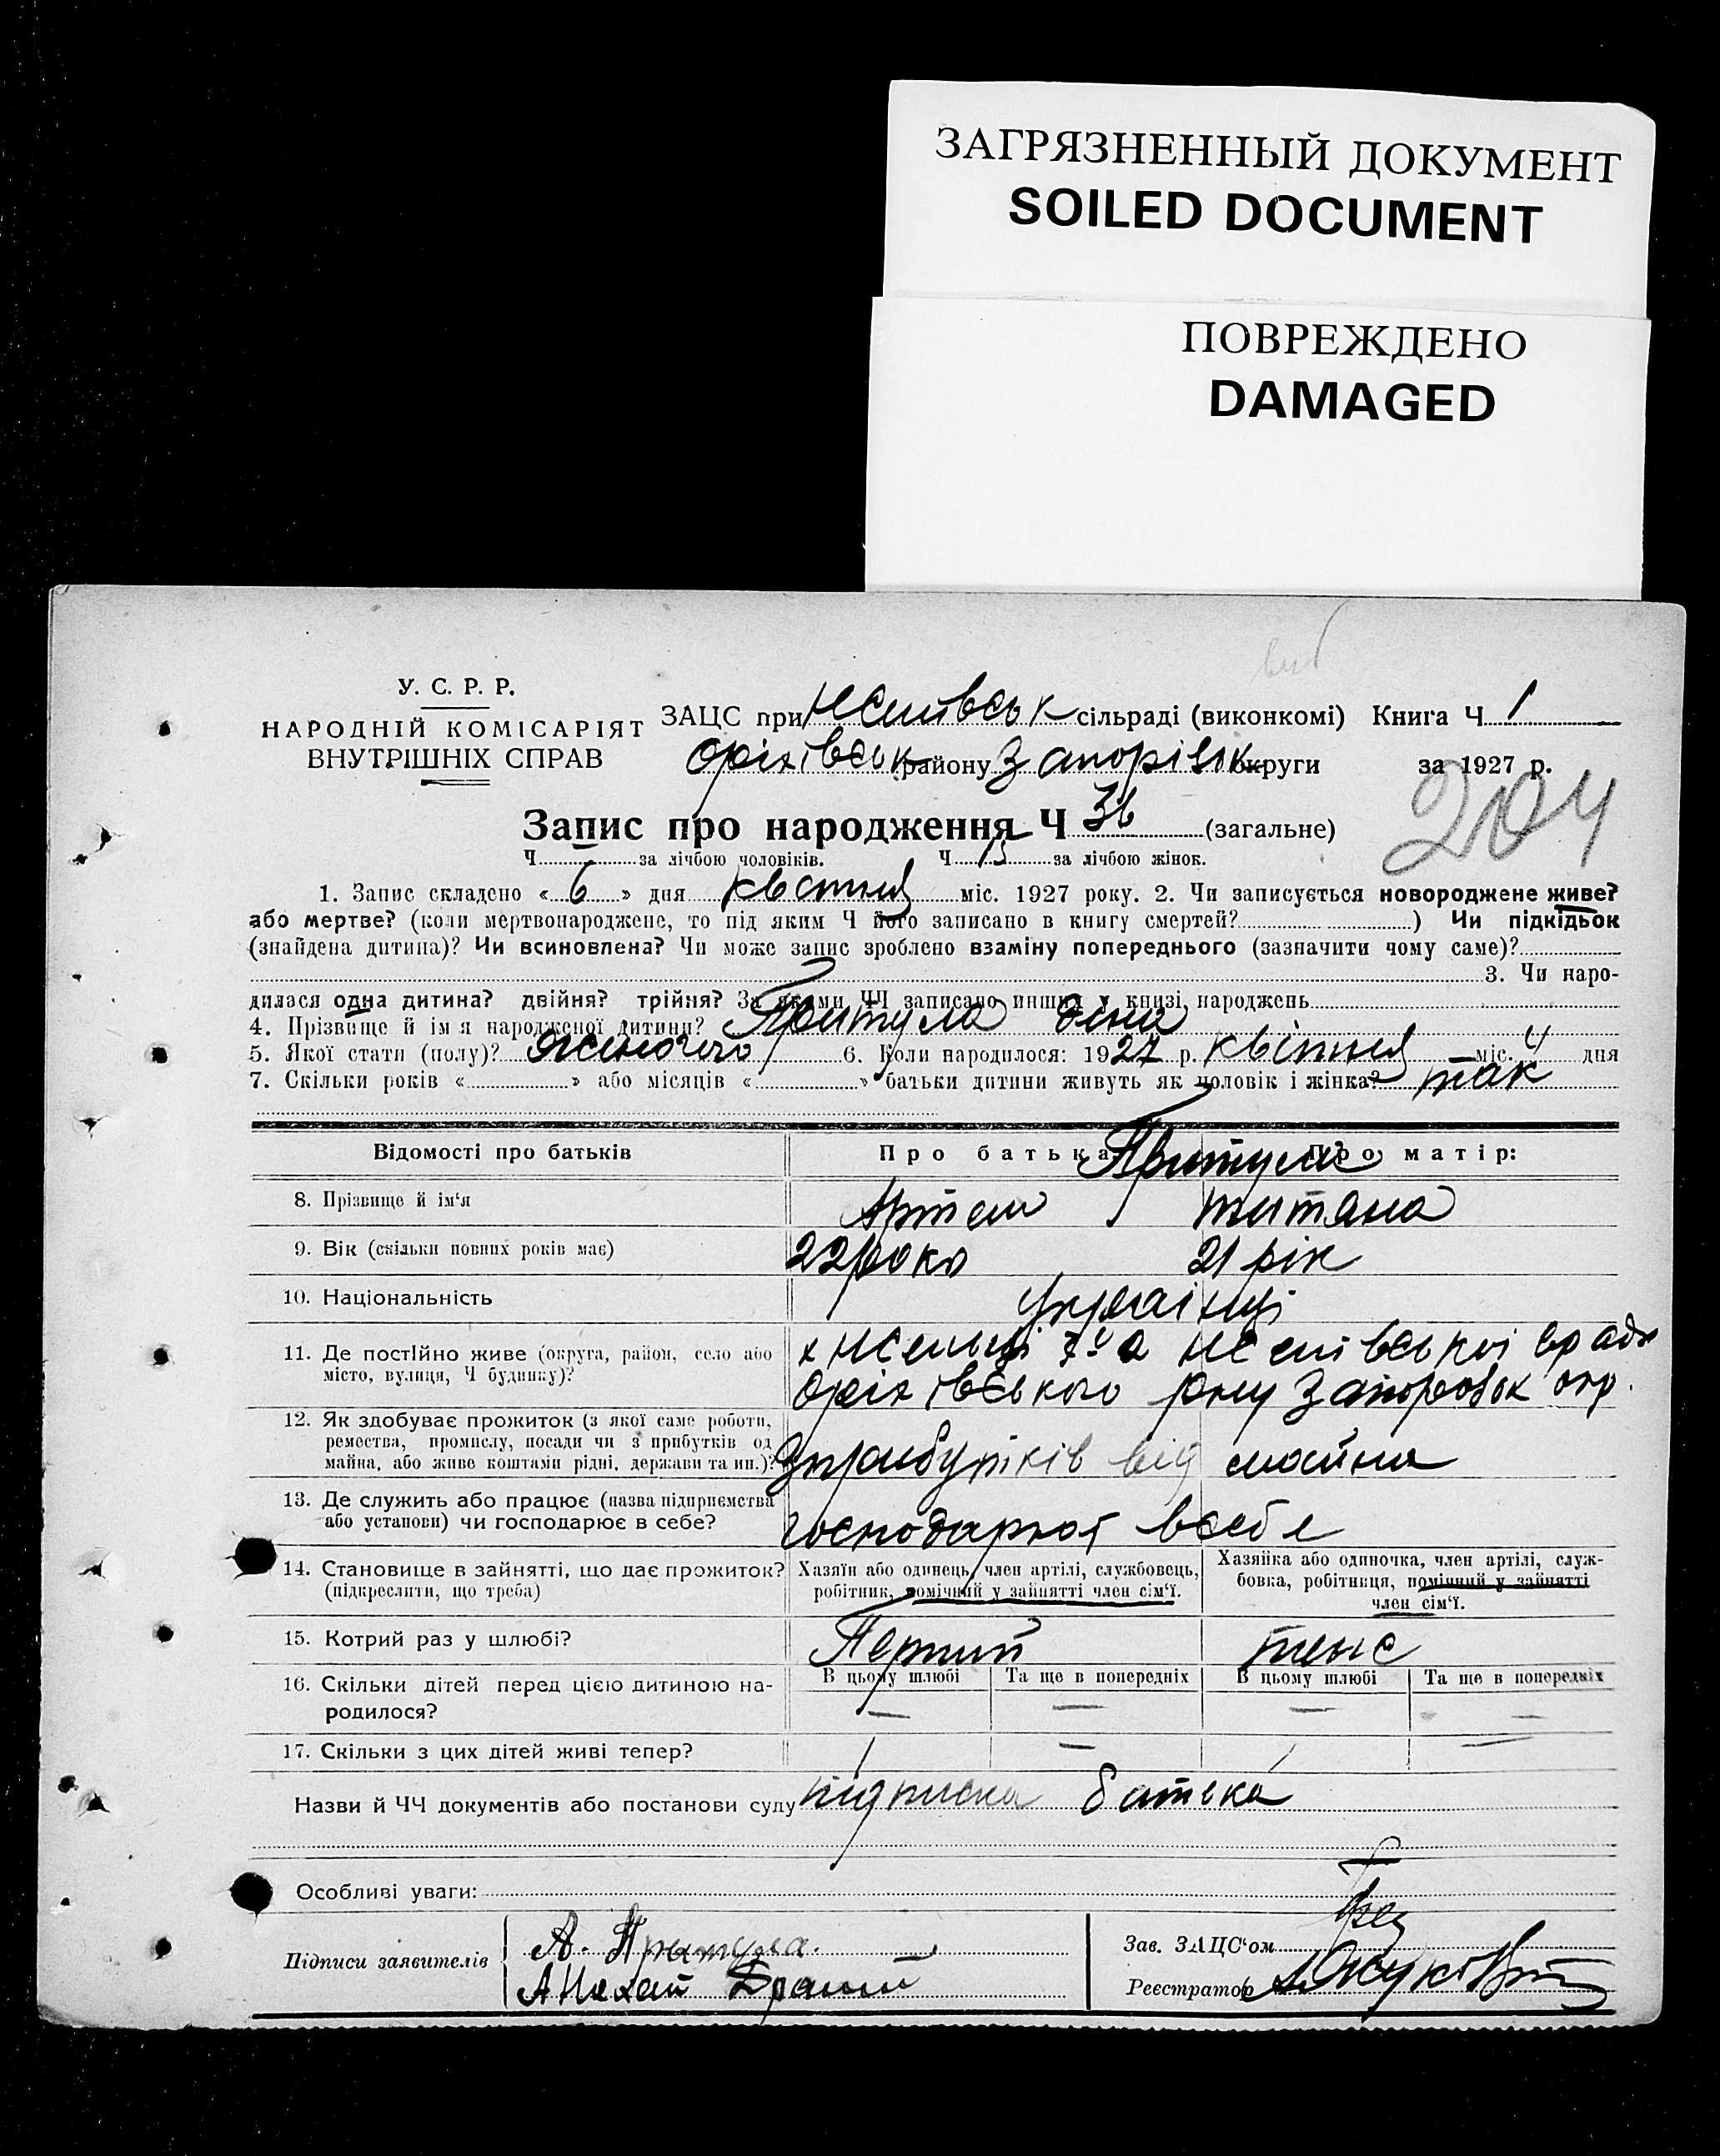 ЗАГРЯЗНЕННЫЙ ДОКУМЕНТ
SOILED DOCUMENT
ПОВРЕЖДЕНО
DAMAGED
У. С. Р. Р.
НАРОДНІЙ КОМІСАРІЯТ
ВНУТРІШНІХ СПРАВ
ЗАЦС при сільраді (виконкомі) Книга Ч 1
Оріхівськ району Запорізьк округи за 1927 р.
204
Запис про народження Ч 36 (загальне)
Ч — за лічбою чоловіків. Ч 15 за лічбою жінок.
1. Запис складено « 6 » дня квітня міс. 1927 року. 2. Чи записується новороджене живе?
або мертве? (коли мертвонароджене, то під яким Ч його записано в книгу смертей? ) Чи підкідьок
(знайдена дитина)? Чи всиновлена? Чи може запис зроблено взаміну попереднього (зазначити чому саме)?
3. Чи наро-
дилася одна дитина? двійня? трійня? За якими ЧЧ записано инших у книзі народжень
4. Прізвище й ім я народженої дитини? Притула Діна
5. Якої стати (полу)? жіночого 6. Коли народилося: 1927 р. квітня міс. 4 дня
7. Скільки років « » або місяців « » батьки дитини живуть як чоловік і жінка? так
Відомості про батьків Про батька: Притула Про матір:
8. Прізвище й ім‘я Артем Титяна
9. Вік (скільки повних років має) 22 роки 21 рік
10. Національність Українці
11. Де постійно живе (округа, район, село або
місто, вулиця, Ч будинку)?
Оріхівського рну Запорізьк окр.
12. Як здобуває прожиток (з якої саме роботи,
ремества, промислу, посади чи з прибутків од
майна, або живе коштами рідні, держави та ин.)? З прибутків від майна
13. Де служить або працює (назва підприємства
або установи) чи господарює в себе? господарюют в себе
14. Становище в зайнятті, що дає прожиток? Хазяїн або одинець, член артілі, службовець, Хазяйка або одиночка, член артілі, служ-
(підкреслити, що треба) робітник, помічний у зайнятті член сім‘ї. бовка, робітниця, помічний у зайнятті
член сім‘ї.
15. Котрий раз у шлюбі? Перший теже
16. Скільки дітей перед цією дитиною на- В цьому шлюбі Та ще в попередніх В цьому шлюбі Та ще в попередніх
родилося? — — — —
17. Скільки з цих дітей живі тепер?
Назви й ЧЧ документів або постанови суду підписка батька
Особливі уваги:
Підписи заявителів А. Притула. Зав. ЗАЦС‘ом
Реєстратор